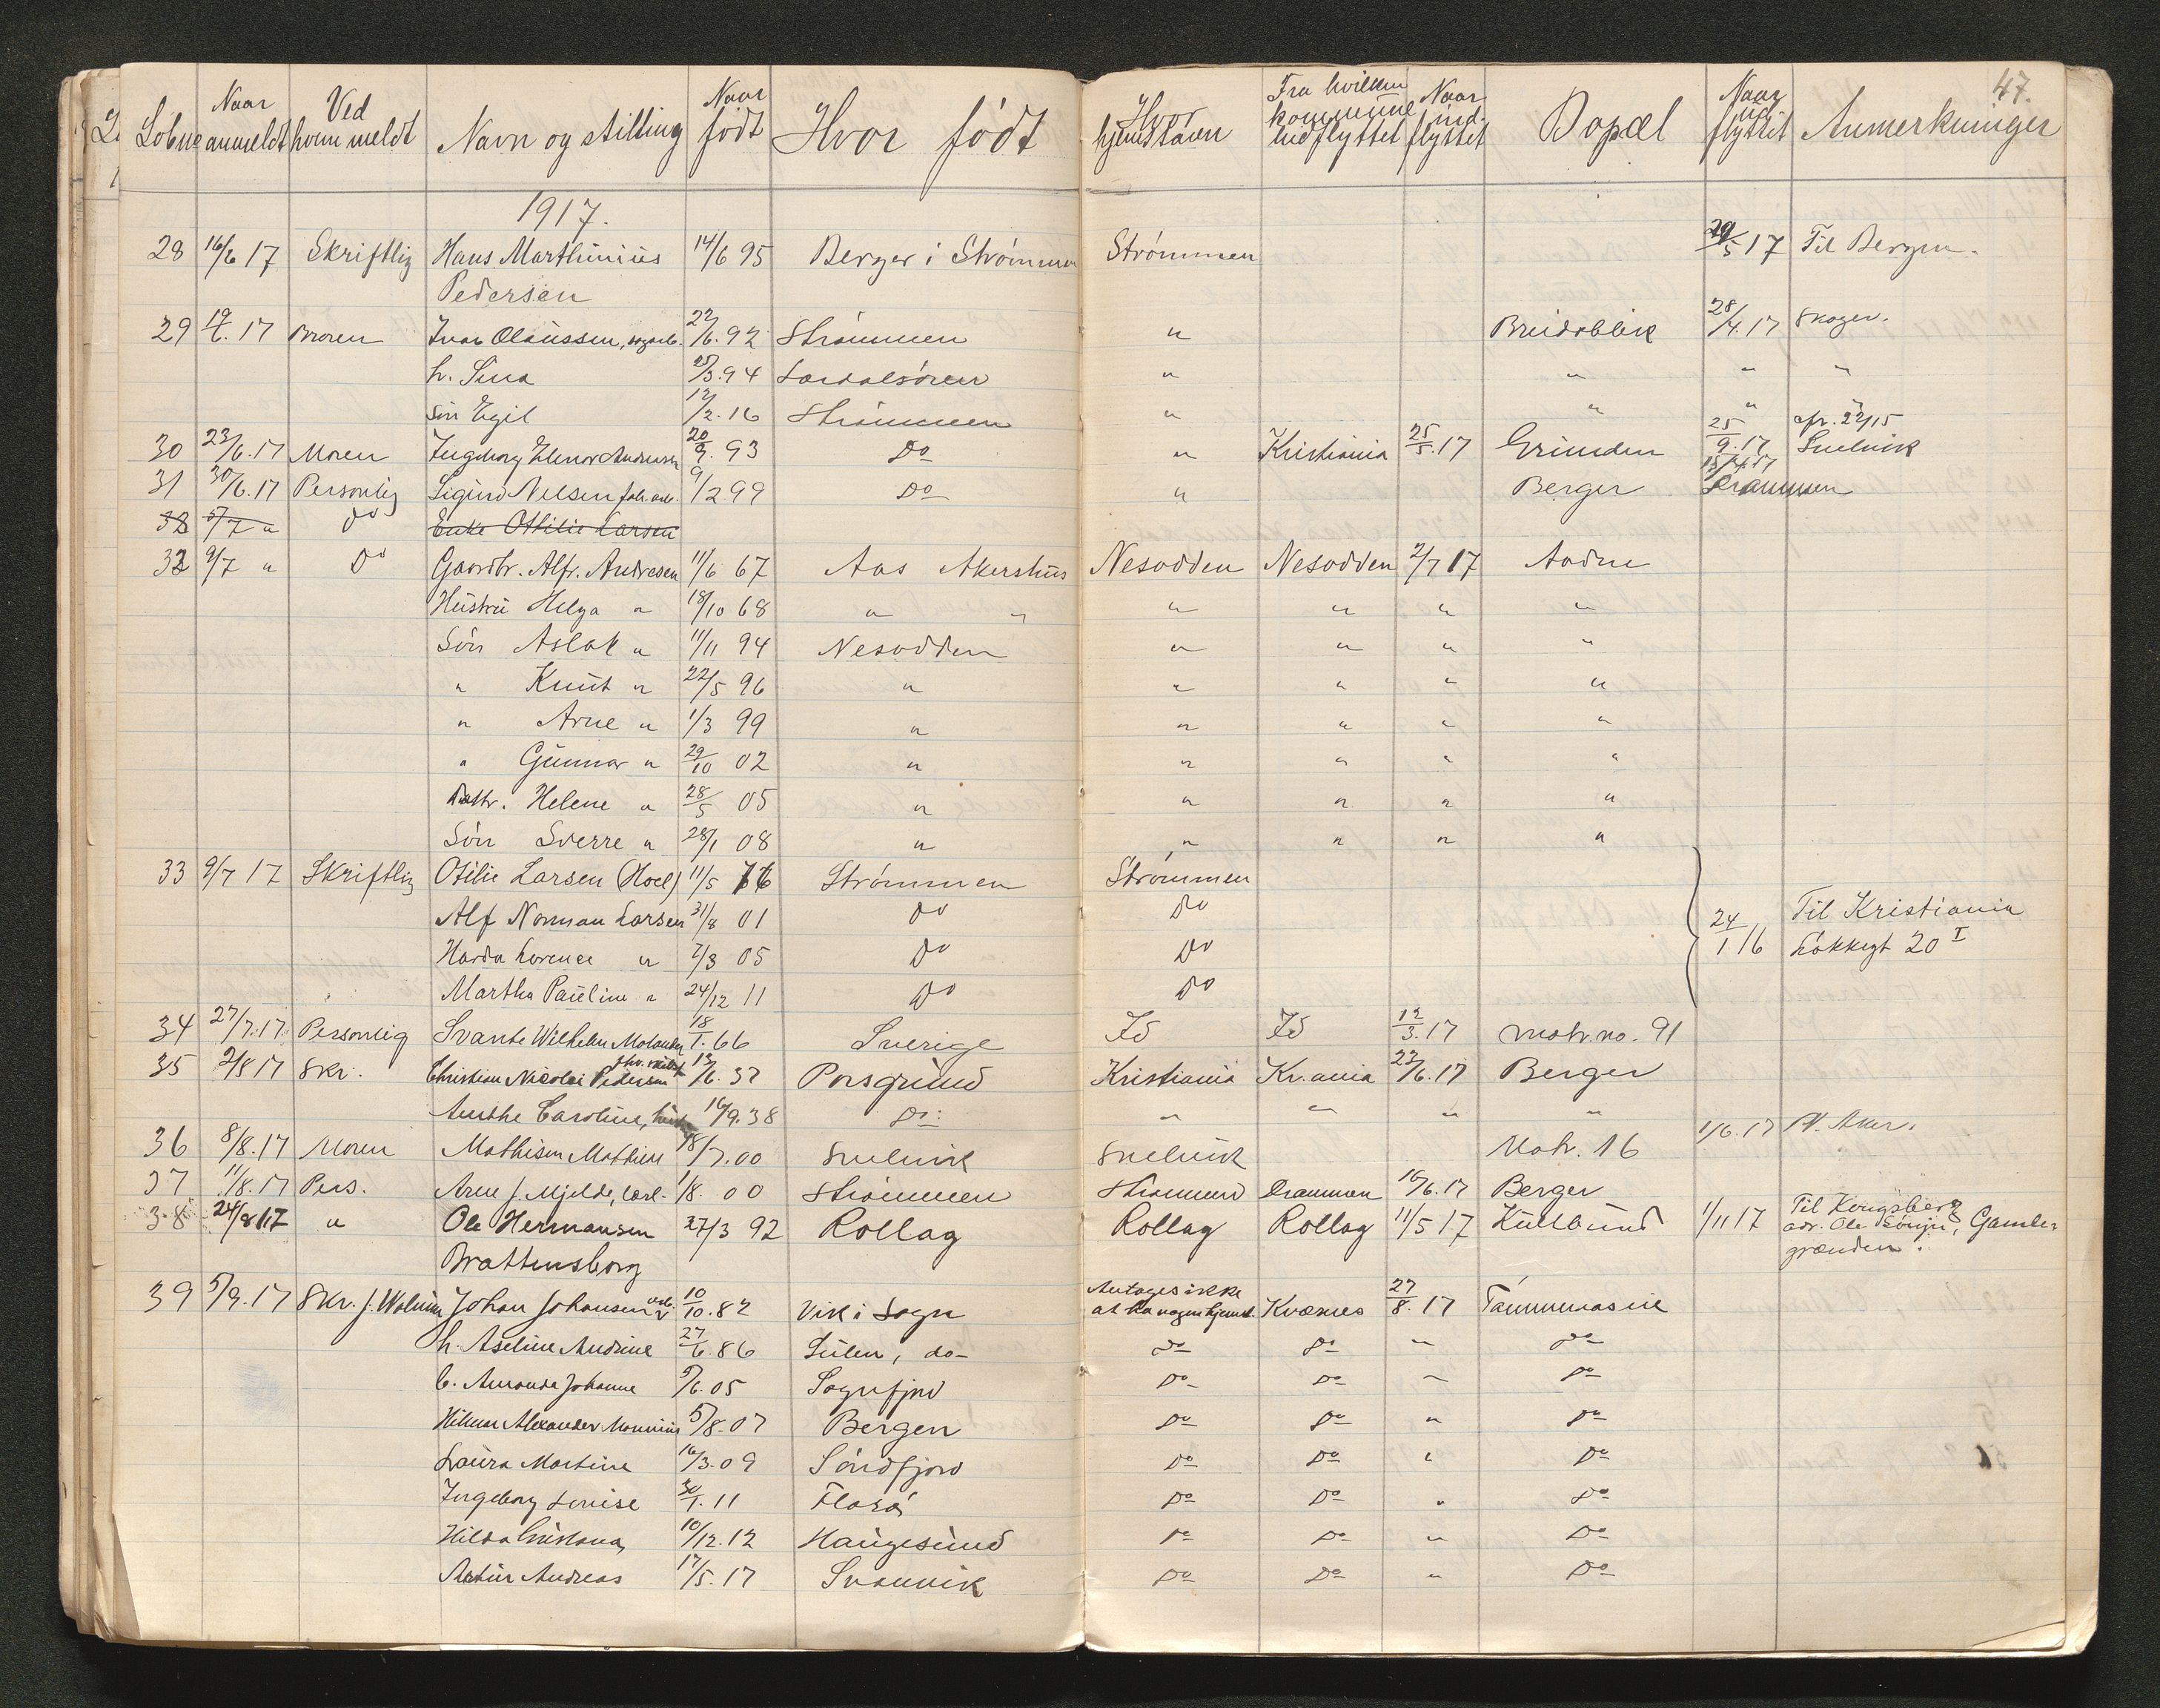 47.
Løbne Naar anmeldt Ved hvem meldt Navn og stilling Naar født Hvor født Hvor hjemstavn Fra hvilken kommune indflyttet Naar indflyttet Bopæl Naar udflyttet Anmerkninger
1917.
28 16/6 17 Skriftlig Hans Marthinius 14/6 95 Berger i Strømmen Strømmen 29/5 17 Til Bergen.
Pedersen
29 19/6. 17 Broren Ivar Olaussen, 22/6. 92 Strømmen " Breidablik 28/4. 17 Skoger.
h. Sina 25/3. 94 Lærdalsøren " " " "
søn Egil 12/2. 16 Strømmen " " " "
cfr. 22/15
30 23/6. 17 Moren Ingeborg Elenor Andresen 20/9. 93 Do " Kristiania 25/5. 17 Grunden 25/9. 17 Svelvik
31 30/6. 17 Personlig Sigurd Nelsen fab. arb. 9/2 99 Do " Berger 15/4. 17 Drammen
32 5/7 " Do Enke Othilie Larsen
32 9/7 " Do Gaardbr. Alfr. Andresen 11/6 67 Aas Akershus Nesodden Nesodden 2/7 17 Aadne
Hustru Helga " 18/10 68 " " " " " "
Søn Aslak " 11/11 94 Nesodden " " " "
" Knut " 22/5 96 " " " " "
" Arne " 1/3 99 " " " " "
" Gunnar " 29/10 02 " " " " "
Datr. Helene " 28/5 05 " " " " "
Søn Sverre " 28/1 08 " " " " "
33 9/7 17 Skriftlig Otilie Larsen (Hoel) 11/5 76 Strømmen Strømmen
Alf Norman Larsen 31/8 01 Do Do 24/1 16 Til Kristiania
Harda Lorence " 7/3 05 Do Do Løkkegt 20 I
Martha Pauline " 24/12 11 Do Do
34 27/7. 17 Personlig Svante Wilhelm Molander 18/1. 66 Sverige Id Id 12/3. 17 matr. no. 91
35 2/8 17 Skr. Christian Nicolai Pedersen 12/6. 37 Porsgrund Kristiania Kr.ania 22/6. 17 Berger
Anthe Caroline, 16/9. 38 Do: " " " "
36 8/8. 17 Moren Mathisen Mathien 18/7. 00 Svelvik Svelvik Matr. 16 1/6. 17 V. Aker.
37 11/8. 17 Pers. Arne J. Mjelde, 1/8. 00 Strømmen Strømmen Drammen 16/6. 17 Berger
38 24/8 17 " Ole Hermansen 27/3 92 Rollag Rollag Rollag 11/5 17 Kullbund 1/11 17 Til Kongsberg
adr. Ole Gamle-
Brattensborg grænden.
39 5/9. 17 Skr. J. Johan Johansen arb. 10/10. 82 Vik i Sogn Antages ikke
at ha nogen hjemst. Kvæsnes 27/8. 17
h. Aseline Andrine 27/6. 86 Sulen, do- do do " do
b. Amanda Johanne 5/6. 05 Sognfjord Do Do " Do
Hilmar Alexander 5/8. 07 Bergen Do Do " Do
Laura Martine 16/3. 09 Søndfjord Do Do " Do
Ingeborg Lovise 30/1. 11 Florø Do Do " Do
Hilda 10/12. 12 Haugesund Do Do " Do
Artur Andreas 17/5. 17 Svanvik Do Do " Do